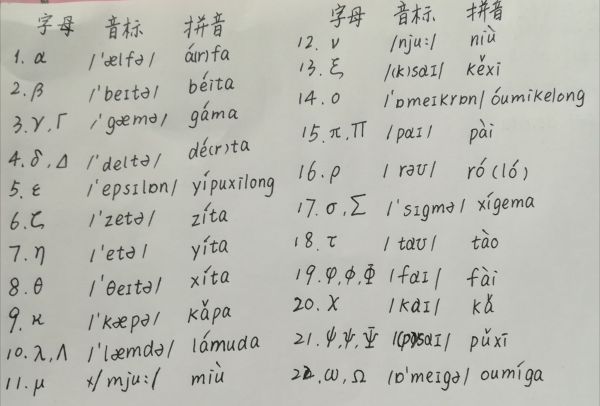 字母 音标 拼音
1. α /'ælfə/ á(r)fa
2. β /'beɪtə/ béita
3. γ, Γ /'gæmə/ gáma
4. δ, Δ /'deltə/ dé(r)ta
5. ε /'epsɪlɒn/ yípuxilong
6. ζ /'zetə/ zíta
7. η /'etə/ yíta
8. θ /'θeɪtə/ xíta
9. κ /'kæpə/ kǎpa
10. λ, Λ /'læmdə/ lámuda
11. μ /mju:/ miù
字母 音标 拼音
12. ν /nju:/ niù
13. ξ /(k)saɪ/ kěxī
14. ο /'ɒmeɪkrɒn/ óumikelong
15. π, Π /paɪ/ pài
16. ρ /rəʊ/ ró(ló)
17. σ, Σ /'sɪgmə/ xígema
18. τ /taʊ/ tào
19. φ, ϕ, Φ /faɪ/ fài
20. χ /kaɪ/ kǎ
21. ψ, ψ, Ψ /(p)saɪ/ pǔxī
22. ω, Ω /ɒ'meɪgə/ oumíga